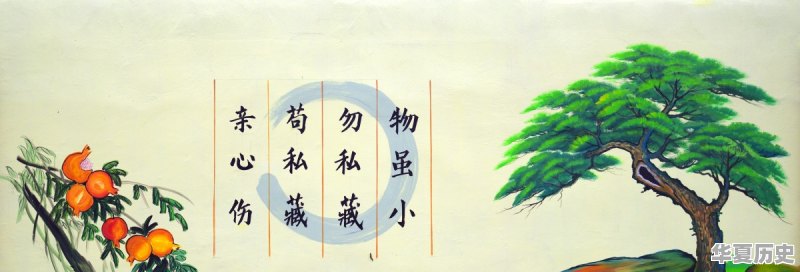 物虽小
勿私藏
苟私藏
亲心伤
华夏历史